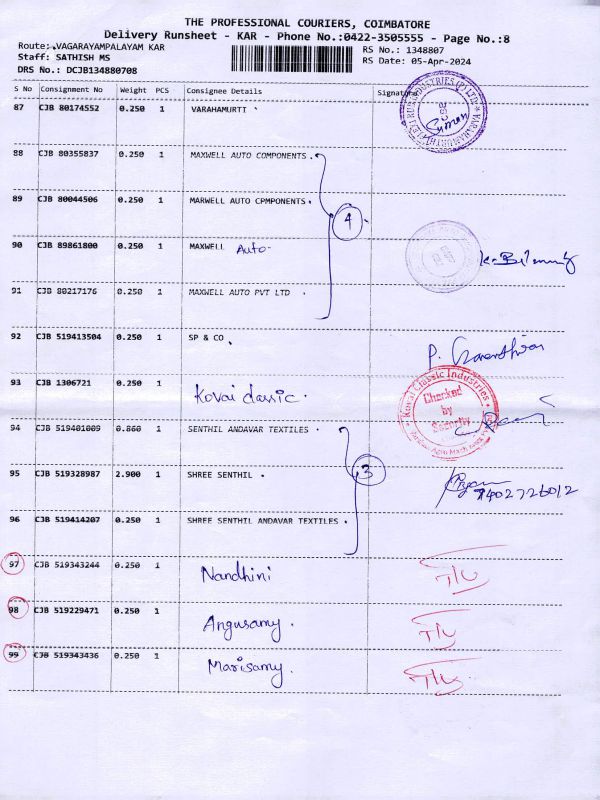 THE PROFESSIONAL COURIERS, COIMBATORE
Delivery Runsheet - KAR - Phone No.:0422-3505555 - Page No.:8
Route:.VAGARAYAMPALAYAM KAR
RS No.: 1348807
Staff: SATHISH MS
RS Date: 05-Apr-2024
DRS No.: DCJB134880708
S No Consignment No Weight PCS Consignee Details Signature
87 CJB 80174552 0.250 1 VARAHAMURTI
88 CJB 80355837 0.250 1 MAXWELL AUTO COMPONENTS.
89 CJB 80044506 0.250 1 MARWELL AUTO CPMPONENTS.
4
90 CJB 89861800 0.250 1 MAXWELL Auto-
91 CJB 80217176 0.250 1 MAXWELL AUTO PVT LTD .
92 CJB 519413504 0.250 1 SP & CO.
93 CJB 1306721 0.250 1 Kovai classic.
Kovai Classic Industries
Checked
by
Security
94 CJB 519401009 0.860 1 SENTHIL ANDAVAR TEXTILES .
95 CJB 519328987 2.900 1 SHREE SENTHIL . 3
9402726012
96 CJB 519414207 0.250 1 SHREE SENTHIL ANDAVAR TEXTILES.
97 CJB 519343244 0.250 1 Nandhini
98 CJB 519229471 0.250 1 Angusamy.
99 CJB 519343436 0.250 1 Marisamy.